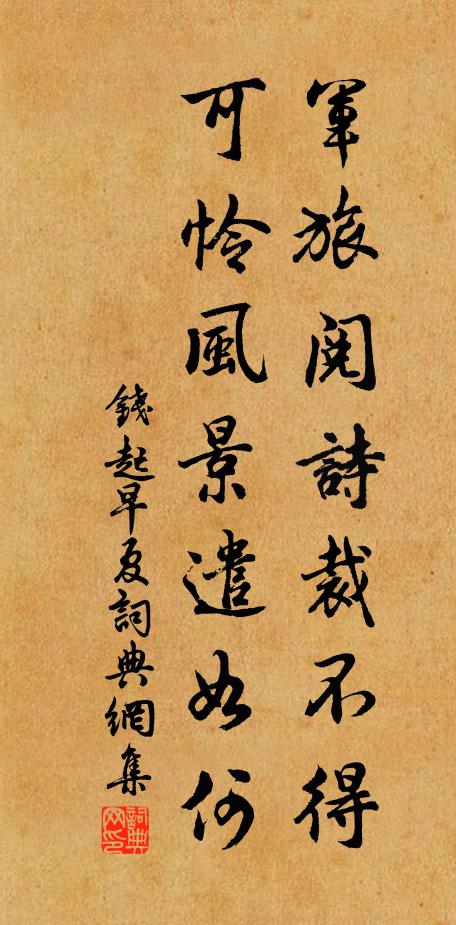 軍旅閱詩裁不得
可憐風景遣如何
錢起早夏詞典網集
詞典網印